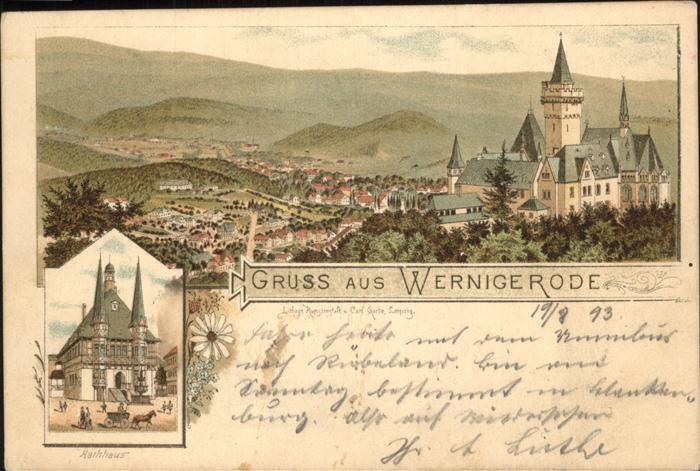 GRUSS AUS WERNIGERODE
Lithogr. Kunstanstalt v. Carl Garte, Leipzig.
19/8 93
Fahre heute mit dem Omnibus
nach Rübeland. bin am
Sonntag bestimmt in Blanken-
burg. Also auf Wiedersehen
Ihr
Rathhaus